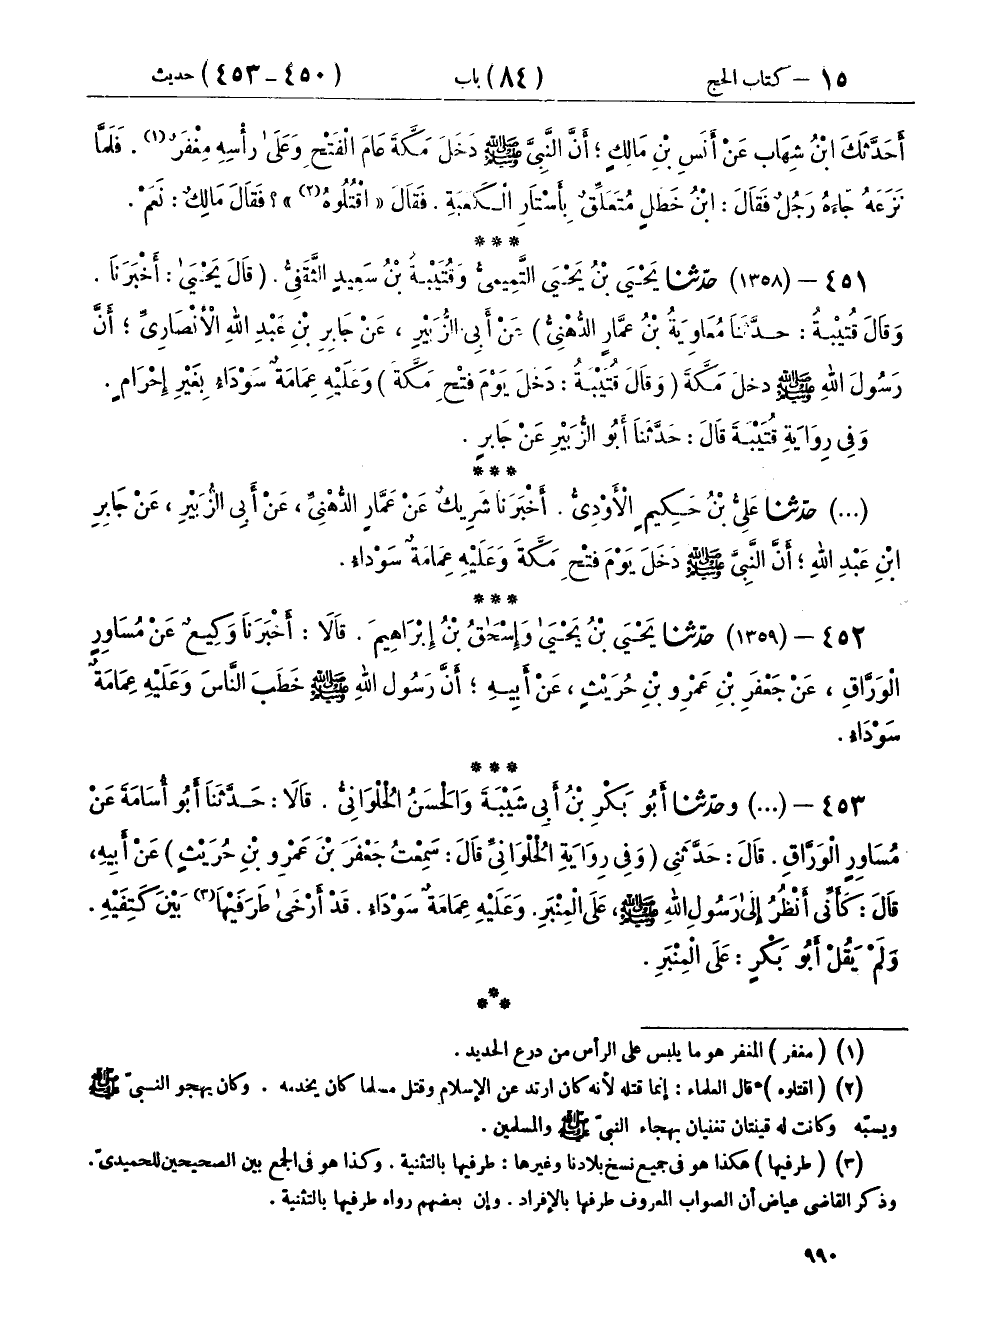 ١٥ – كتاب الحج (٨٤) باب (٤٥٠ – ٤٥٣) حديث
أَحَدَّثَكَ ابْنُ شِهَابٍ عَنْ أَنَسِ بْنِ مَالِكٍ ؛ أَنَّ النَّبِيَّ ﷺ دَخَلَ مَكَّةَ عَامَ الْفَتْحِ وَعَلَىٰ رَأْسِهِ مِغْفَرٌ (١) . فَلَمَّا
نَزَعَهُ جَاءَهُ رَجُلٌ فَقَالَ : ابْنُ خَطَلٍ مُتَعَلِّقٌ بِأَسْتَارِ الْكَعْبَةِ . فَقَالَ « اقْتُلُوهُ (٢) » ؟ فَقَالَ مَالِكٌ : نَعَمْ .
***
٤٥١ – (١٣٥٨) حدّثنا يَحْيَى بْنُ يَحْيَى التَّمِيمِيُّ وَقُتَيْبَةُ بْنُ سَعِيدٍ الثَّقَفِيُّ . ( قَالَ يَحْيَىٰ : أَخْبَرَنَا .
وَقَالَ قُتَيْبَةُ : حَدَّثَنَا مُعَاوِيَةُ بْنُ عَمَّارٍ الدُّهْنِيُّ ) عَنْ أَبِي الزُّبَيْرِ ، عَنْ جَابِرِ بْنِ عَبْدِ اللهِ الْأَنْصَارِيِّ ؛ أَنَّ
رَسُولَ اللهِ ﷺ دَخَلَ مَكَّةَ ( وَقَالَ قُتَيْبَةُ : دَخَلَ يَوْمَ فَتْحِ مَكَّةَ ) وَعَلَيْهِ عِمَامَةٌ سَوْدَاءُ بِغَيْرِ إِحْرَامٍ .
وَفِي رِوَايَةِ قُتَيْبَةَ قَالَ : حَدَّثَنَا أَبُو الزُّبَيْرِ عَنْ جَابِرٍ .
***
(...) حدّثنا عَلِيُّ بْنُ حَكِيمٍ الْأَوْدِيُّ . أَخْبَرَنَا شَرِيكٌ عَنْ عَمَّارٍ الدُّهْنِيِّ ، عَنْ أَبِي الزُّبَيْرِ ، عَنْ جَابِرِ
ابْنِ عَبْدِ اللهِ ؛ أَنَّ النَّبِيَّ ﷺ دَخَلَ يَوْمَ فَتْحِ مَكَّةَ وَعَلَيْهِ عِمَامَةٌ سَوْدَاءُ .
***
٤٥٢ – (١٣٥٩) حدّثنا يَحْيَى بْنُ يَحْيَىٰ وَإِسْحَقُ بْنُ إِبْرَاهِيمَ . قَالَا : أَخْبَرَنَا وَكِيعٌ عَنْ مُسَاوِرٍ
الْوَرَّاقِ ، عَنْ جَعْفَرِ بْنِ عَمْرِو بْنِ حُرَيْثٍ ، عَنْ أَبِيهِ ؛ أَنَّ رَسُولَ اللهِ ﷺ خَطَبَ النَّاسَ وَعَلَيْهِ عِمَامَةٌ
سَوْدَاءُ .
***
٤٥٣ – (...) وحدّثنا أَبُو بَكْرِ بْنُ أَبِي شَيْبَةَ وَالْحَسَنُ الْحُلْوَانِيُّ . قَالَا : حَدَّثَنَا أَبُو أُسَامَةَ عَنْ
مُسَاوِرٍ الْوَرَّاقِ . قَالَ : حَدَّثَنِي ( وَفِي رِوَايَةِ الْحُلْوَانِيِّ قَالَ : سَمِعْتُ جَعْفَرَ بْنَ عَمْرِو بْنِ حُرَيْثٍ ) عَنْ أَبِيهِ ،
قَالَ : كَأَنِّي أَنْظُرُ إِلَىٰ رَسُولِ اللهِ ﷺ ، عَلَى الْمِنْبَرِ . وَعَلَيْهِ عِمَامَةٌ سَوْدَاءُ . قَدْ أَرْخَىٰ طَرَفَيْهَا (٣) بَيْنَ كَتِفَيْهِ .
وَلَمْ يَقُلْ أَبُو بَكْرٍ : عَلَى الْمِنْبَرِ .
***
(١) ( مغفر ) المغفر هو ما يلبس على الرأس من درع الحديد .
(٢) ( اقتلوه ) قال العلماء : إنما قتله لأنه كان ارتد عن الإسلام وقتل مسلما كان يخدمه . وكان يهجو النبيّ ﷺ
ويسبّه وكانت له قينتان تغنيان بهجاء النبيّ ﷺ والمسلمين .
(٣) ( طرفيها ) هكذا هو في جميع نسخ بلادنا وغيرها : طرفيها بالتثنية . وكذا هو في الجمع بين الصحيحين للحميديّ .
وذكر القاضي عياض أن الصواب المعروف طرفها بالإفراد . وإن بعضهم رواه طرفيها بالتثنية .
٩٩٠